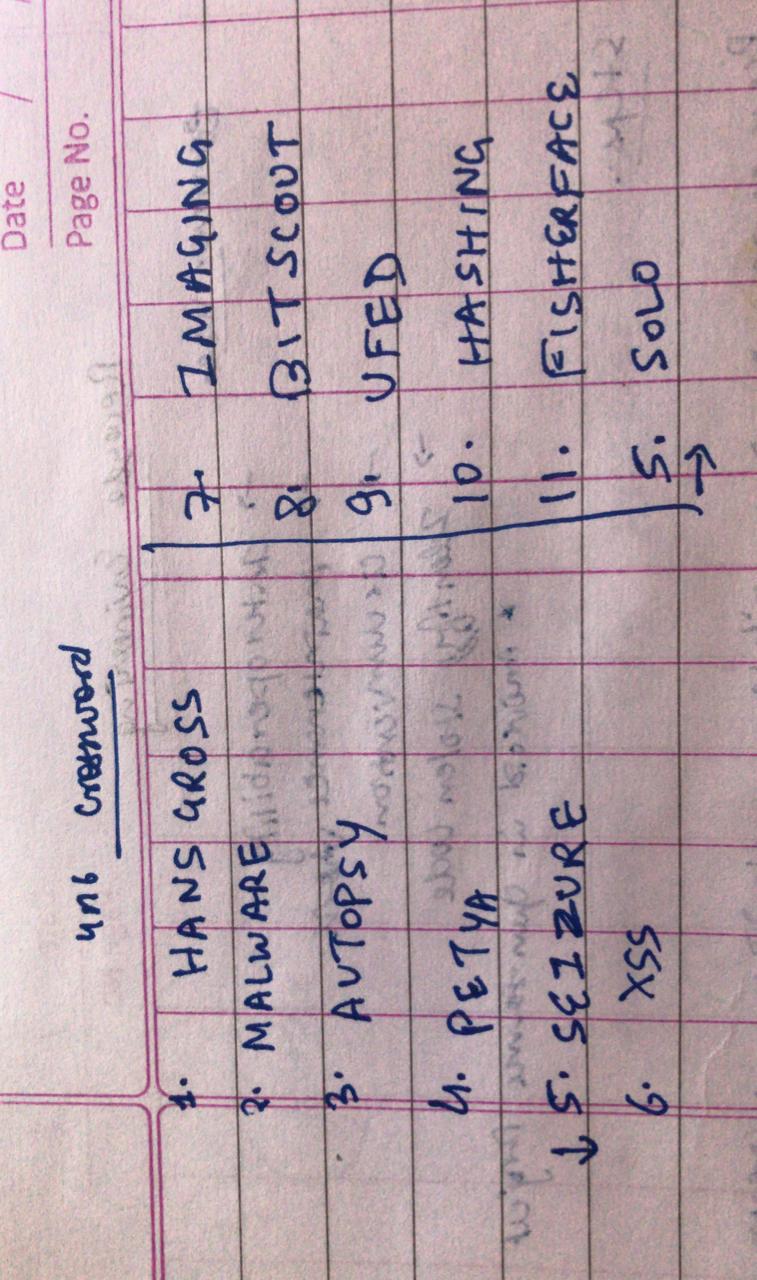 Date / /
Page No.
4n6 crossword
1. HANS GROSS
2. MALWARE
3. AUTOPSY
4. PETYA
↓ 5. SEIZURE
6. XSS
7. IMAGING
8. BITSCOUT
9. UFED
10. HASHING
11. FISHERFACE
→ 5. SOLO